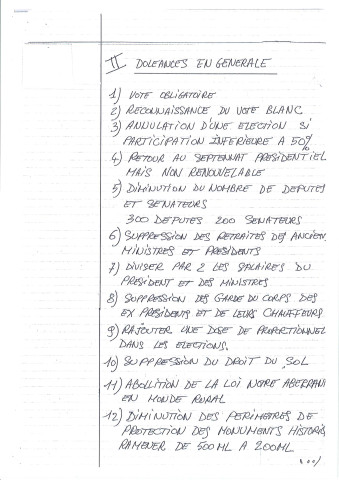 II DOLEANCES EN GENERALE
1) VOTE OBLIGATOIRE
2) RECONNAISSANCE DU VOTE BLANC
3) ANNULATION D'UNE ELECTION SI
PARTICIPATION INFERIEURE A 50%
4) RETOUR AU SEPTENNAT PRESIDENTIEL
MAIS NON RENOUVELABLE
5) DIMINUTION DU NOMBRE DE DEPUTES
ET SENATEURS
300 DEPUTES 200 SENATEURS
6) SUPPRESSION DES RETRAITES DES ANCIEN
MINISTRES ET PRESIDENTS
7) DIVISER PAR 2 LES SALAIRES DU
PRESIDENT ET DES MINISTRES
8) SUPPRESSION DES GARDE DU CORPS DES
EX PRESIDENTS ET DE LEURS CHAUFFEURS
9) RAJOUTER UNE DOSE DE PROPORTIONNEL
DANS LES ELECTIONS.
10) SUPPRESSION DU DROIT DU SOL
11) ABOLLITION DE LA LOI NOTRE ABERRAN
EN MONDE RURAL
12) DIMINUTION DES PERIMETRES DE
PROTECTION DES MONUMENTS HISTORI
RAMENER DE 500ML A 200ML
.../